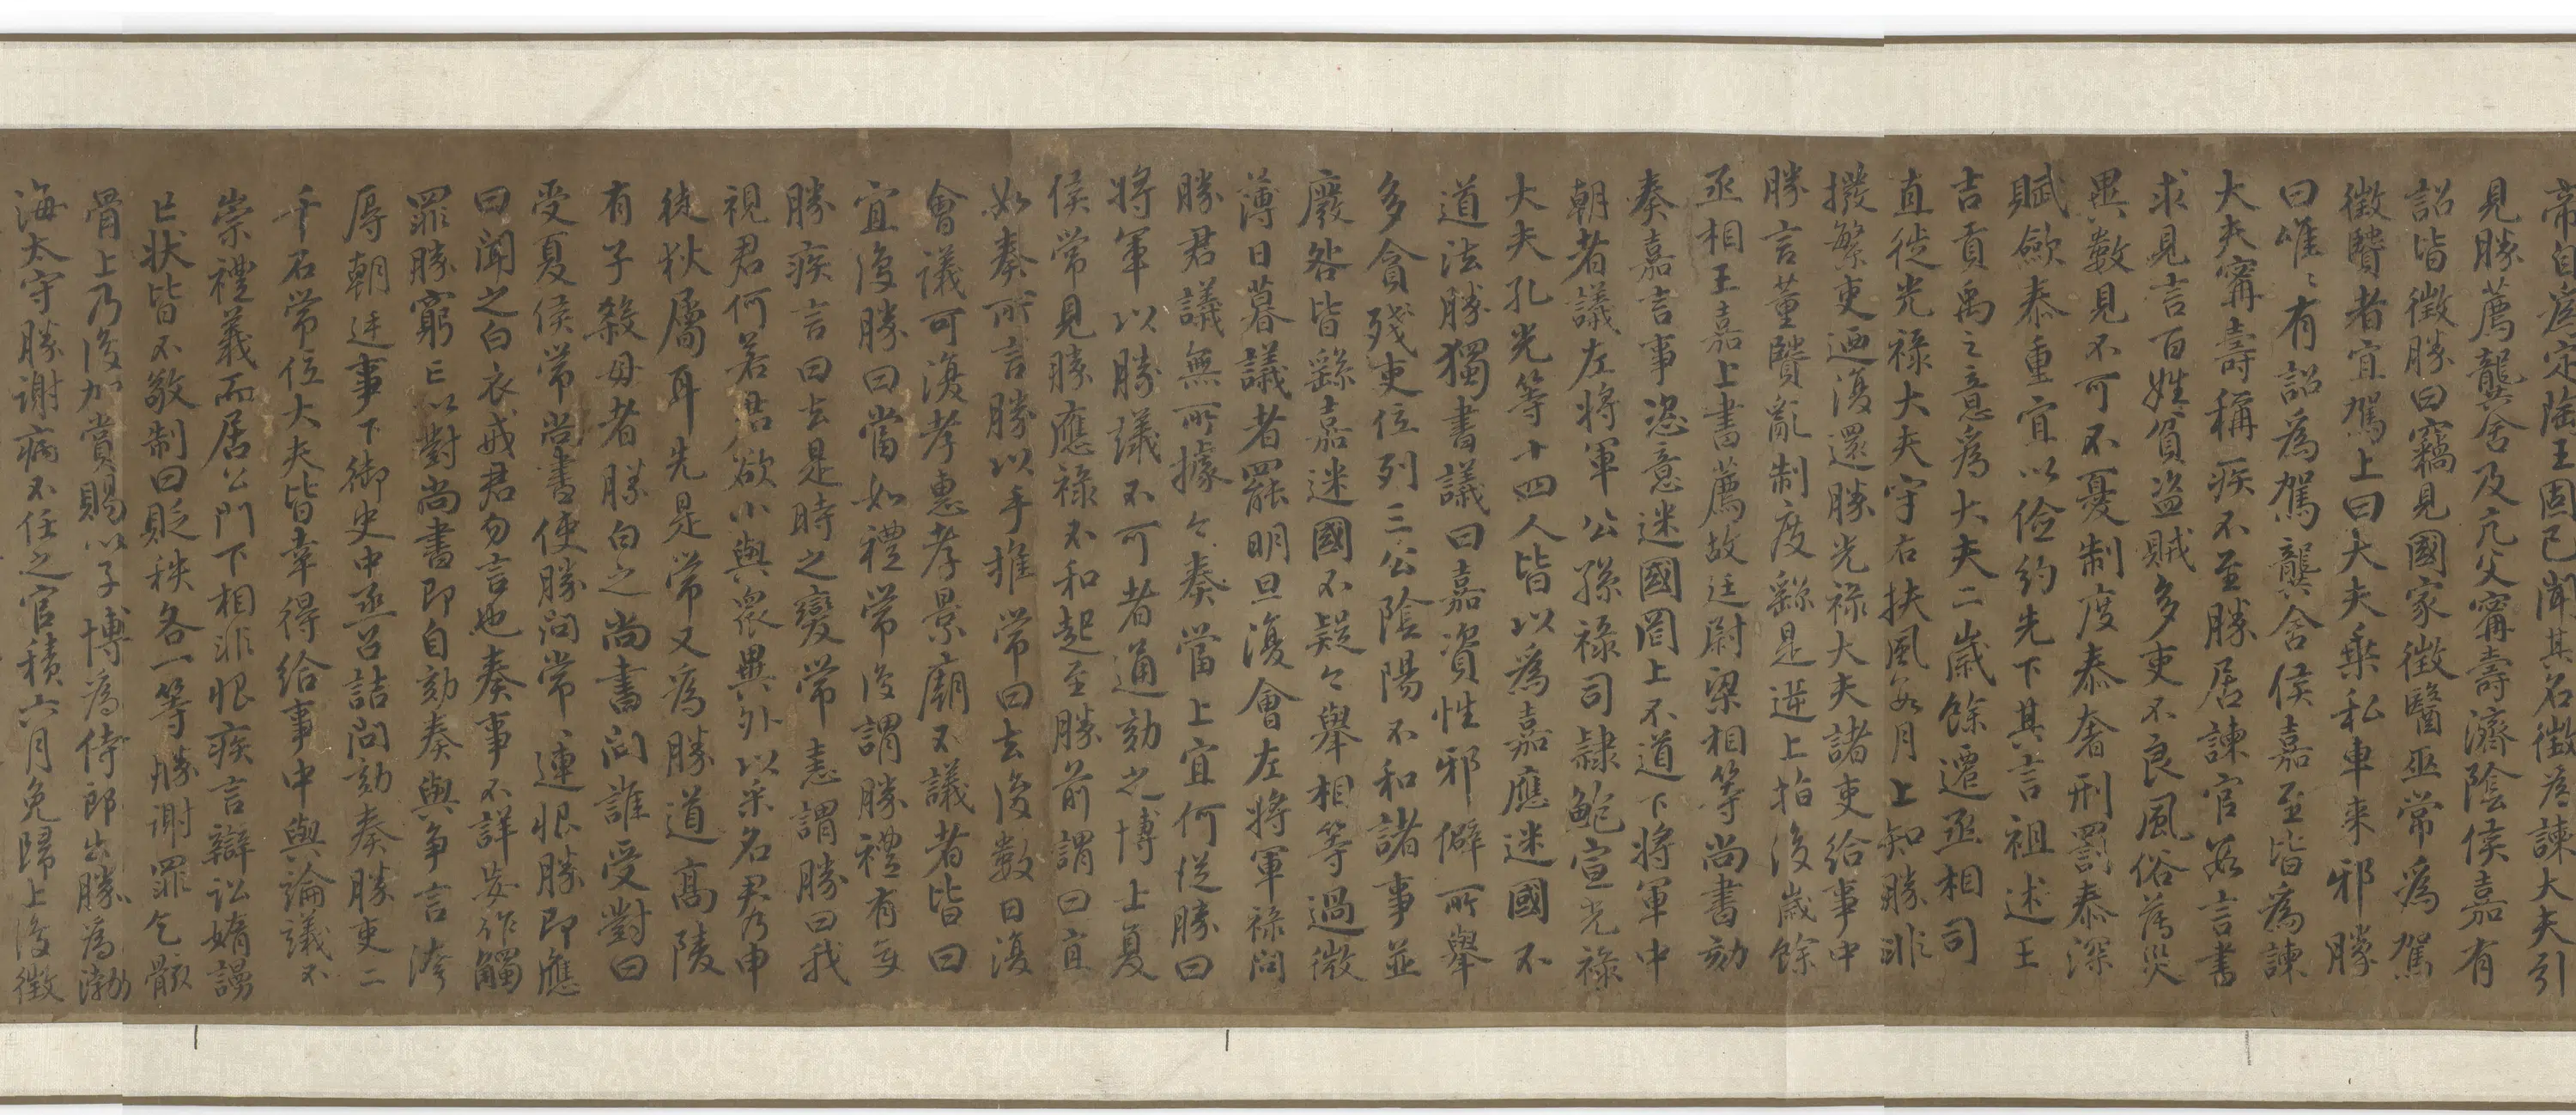 帝自為定陶王固已聞其名徵為諫大夫引
見勝薦龔舍及亢父甯壽濟陰侯嘉有
詔皆徵勝曰竊見國家徵醫巫常為駕
徵賢者宜駕上曰大夫乘私車來邪勝
曰唯〻有詔為駕龔舍侯嘉至皆為諫
大夫甯壽稱疾不至勝居諫官數言書
求見言百姓貧盜賊多吏不良風俗薄災
異數見不可不憂制度泰奢刑罰泰深
賦斂泰重宜以儉約先下其言祖述王
吉貢禹之意為大夫二歲餘遷丞相司
直徙光祿大夫守右扶風數月上知勝非
撥繁吏迺復還勝光祿大夫諸吏給事中
勝言董賢亂制度繇是逆上指後歲餘
丞相王嘉上書薦故廷尉梁相等尚書劾
奏嘉言事恣意迷國罔上不道下將軍中
朝者議左將軍公孫祿司隸鮑宣光祿
大夫孔光等十四人皆以為嘉應迷國不
道法勝獨書議曰嘉資性邪僻所舉
多貪殘吏位列三公陰陽不和諸事並
廢咎皆繇嘉迷國不疑今舉相等過微
薄日暮議者罷明旦復會左將軍祿問
勝君議無所據今奏當上宜何從勝曰
將軍以勝議不可者通劾之博士夏
侯常見勝應祿不和起至勝前謂曰宜
如奏所言勝以手推常曰去後數日復
會議可復孝惠孝景廟不議者皆曰
宜復勝曰當如禮常復謂勝禮有變
勝疾言曰去是時之變常恚謂勝曰我
視君何若君欲小與眾異外以采名君乃申
徒狄屬耳先是常又為勝道高陵
有子殺母者勝白之尚書問誰受對曰
受夏侯常尚書使勝問常連恨勝即應
曰聞之白衣戒君勿言也奏事不詳妄作觸
罪勝窮亡以對尚書即自劾奏與爭言洿
辱朝廷事下御史中丞召詰問劾奏勝吏二
千石常位大夫皆幸得給事中與論議不
崇禮義而居公門下相非恨疾言辯訟媠謾
亡狀皆不敬制曰貶秩各一等勝謝罪乞骸
骨上乃復加賞賜以子博為侍郎出勝為渤
海太守勝謝病不任之官積六月免歸上復徵